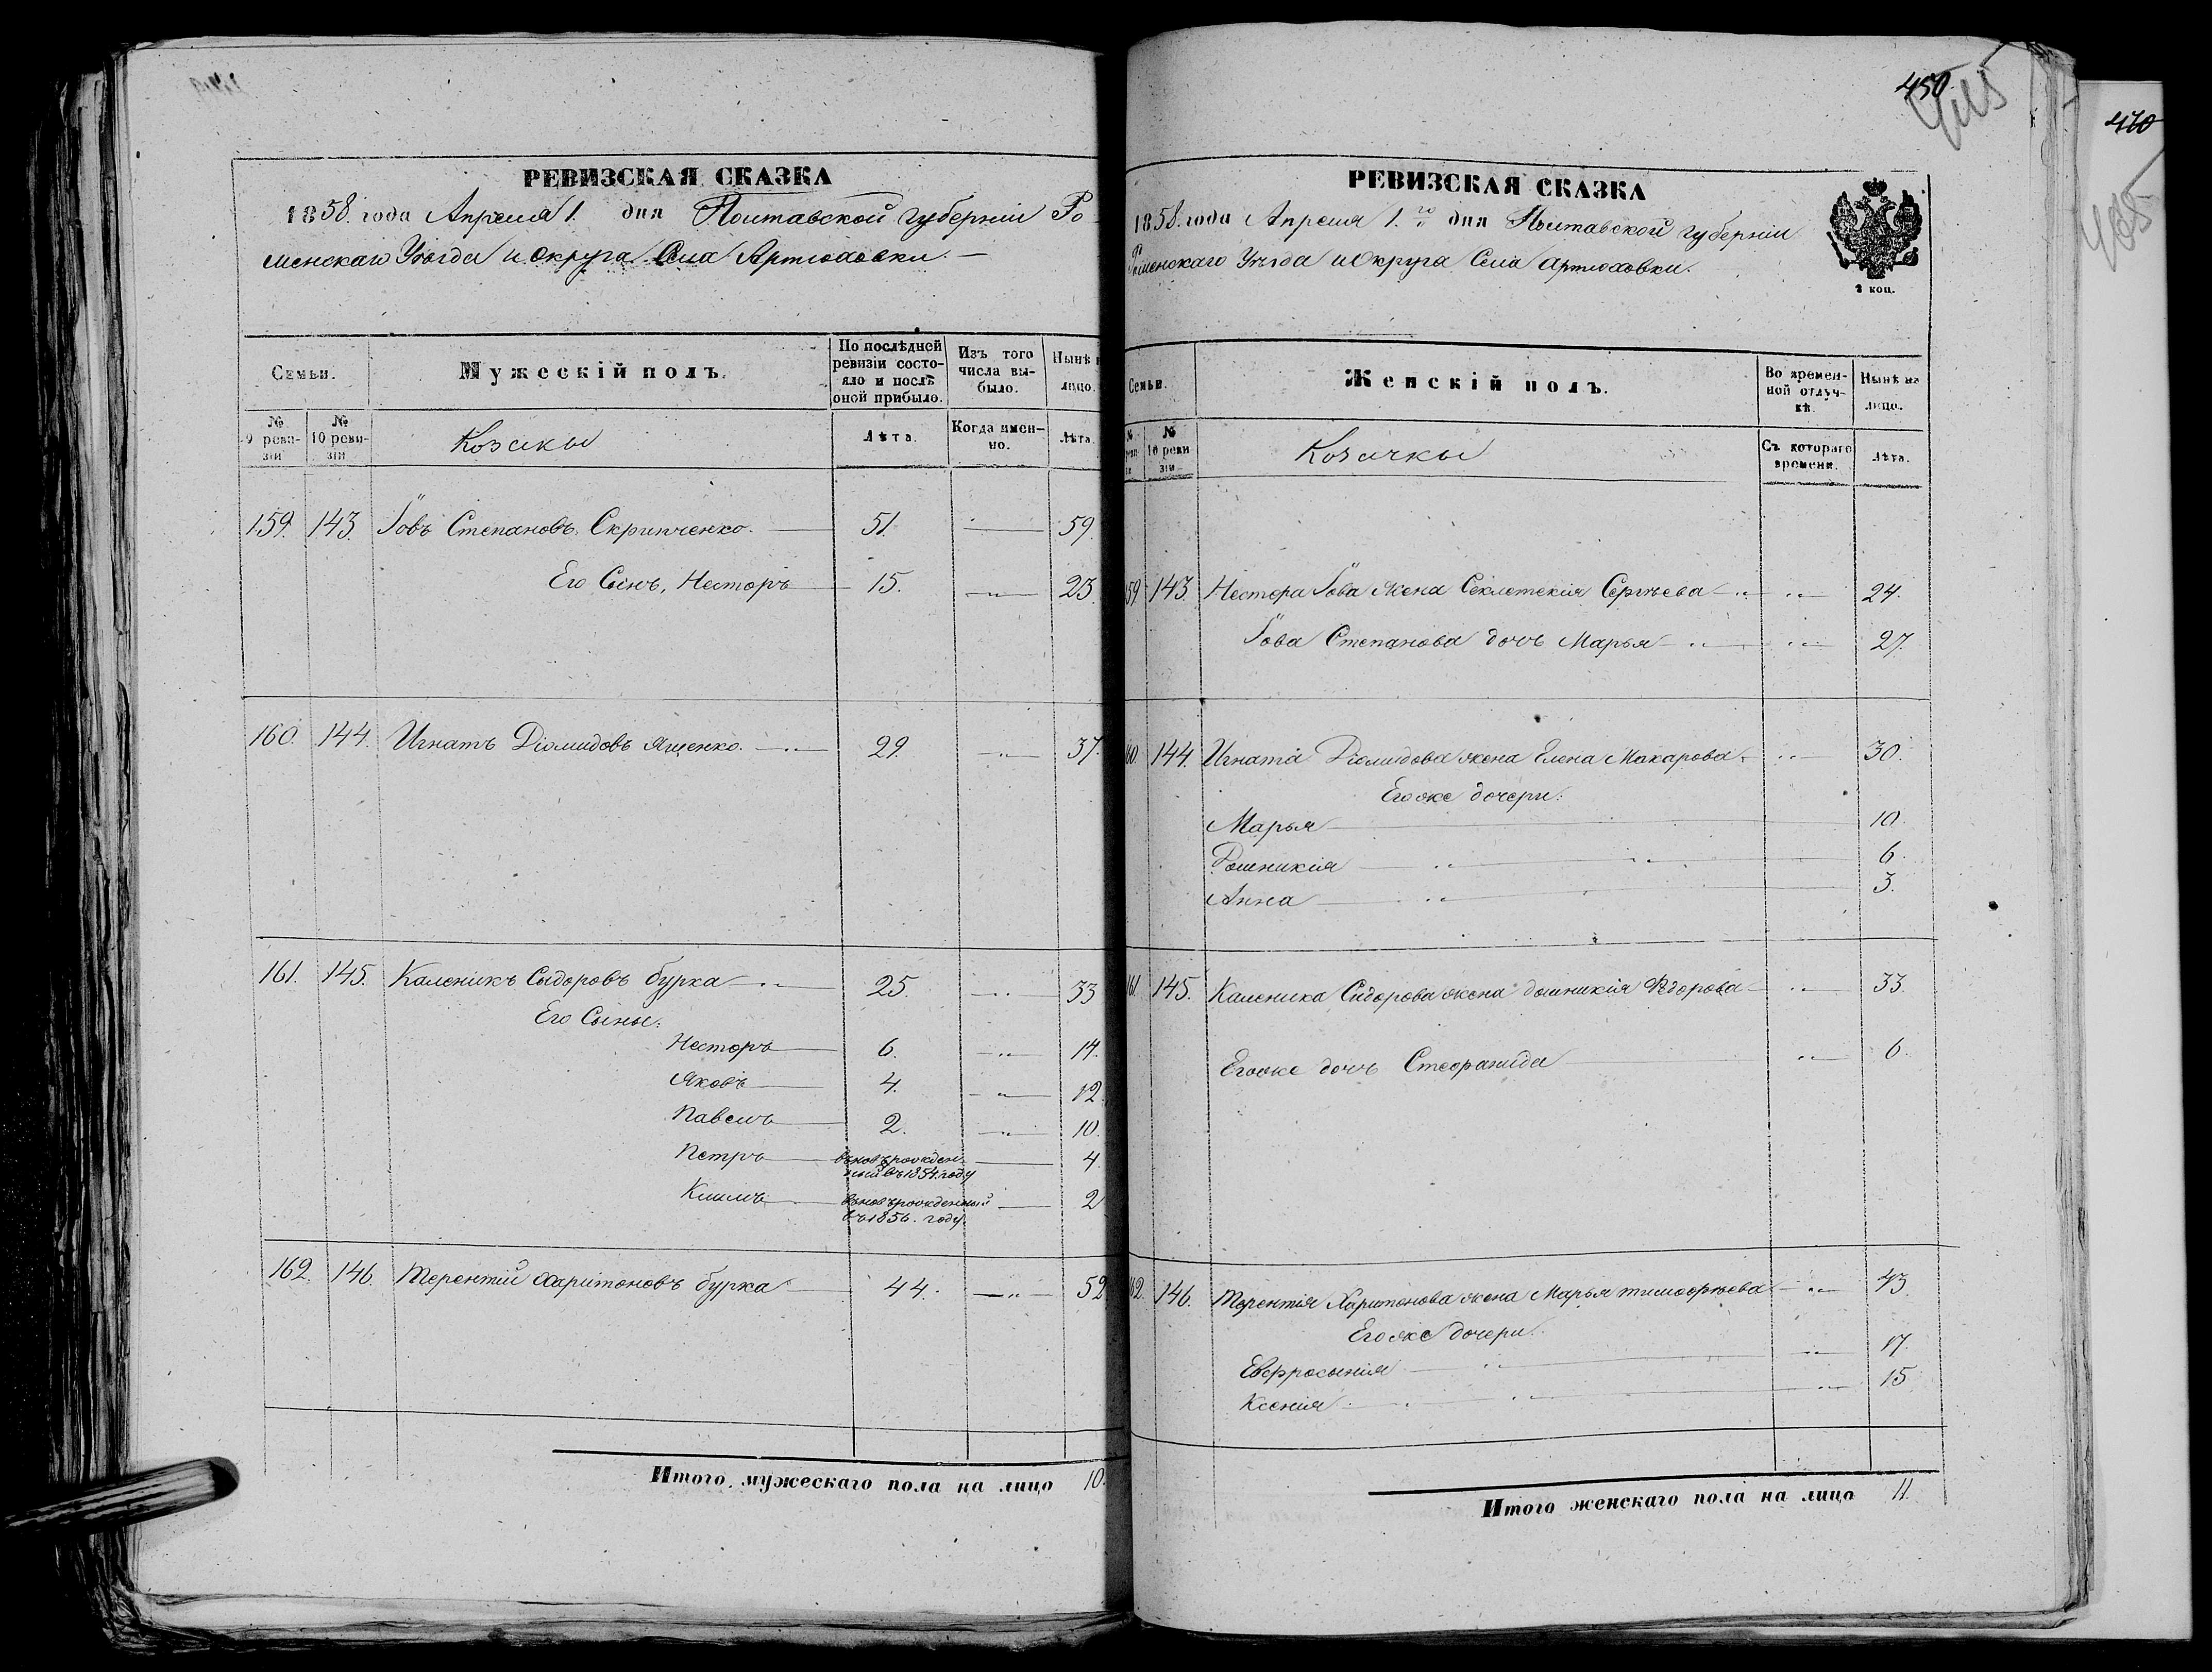 РЕВИЗСКАЯ СКАЗКА
1858. года Апреля 1. дня Полтавской губерніи Ро-
менскаго Уѣзда и Округа Села Артюховки. —
Семьи.
Мужескій полъ.
По послѣдней ревизіи состояло и послѣ оной прибыло.
Изъ того числа выбыло.
Нынѣ н лицо.
№ 9 ревизіи
№ 10 ревизіи
Козаки
Лѣта.
Когда именно.
Лѣта.
159. 143. Іовъ Степановъ Скрипченко. 51. 59.
Его Сынъ, Несторъ 15. 23.
160. 144. Игнатъ Діомидовъ Ященко. 29. 37.
161. 145. Каленикъ Сыдоровъ бурка 25. 33
Его Сыны:
Несторъ 6. 14.
Яковъ 4. 12.
Павелъ 2. 10.
Петръ вновьрожден- 4.
ный въ 1854. году
Климъ вновьрожденный 2
въ 1856. году.
162. 146. Терентій Харитоновъ бурка 44. 52
Итого мужескаго пола на лицо 10.
450.
РЕВИЗСКАЯ СКАЗКА
1858. года Апреля 1.го дня Полтавской губерніи
Роменскаго Уѣзда и Округа Села Артюховки.
2 коп.
Семьи.
Женскій полъ.
Во временной отлучкѣ.
Нынѣ на лицо.
№ 10 ревизіи
Козачкы
Съ котораго времени.
Лѣта.
59 143. Нестера Іова жена Секлетекія Сергѣева 24.
Іова Степанова дочь Марья 27.
60. 144. Игната Діомидова жена Елена Макарова 30.
Егоже дочери:
Марья 10.
Домникія 6.
Анна 3.
61. 145. Каленика Сидорова жена домникія Ѳедорова 33.
Егоже дочь Стефанида 6.
62. 146. Терентія Харитонова жена Марья тимофѣева 43.
Егоже дочери:
Евфросынія 17.
Ксенія 15
Итого женскаго пола на лицо 11.
410